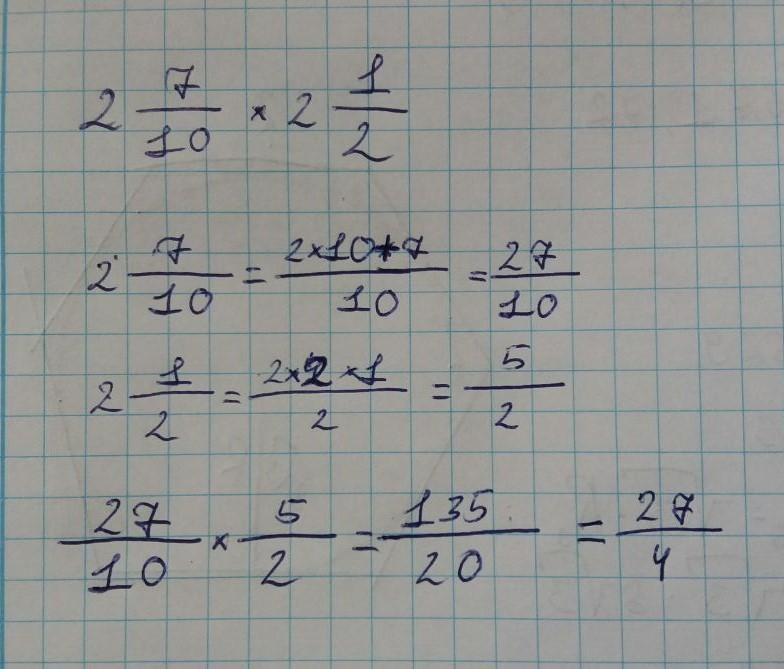 2 7/10 × 2 1/2
2 7/10 = 2×10+7/10 = 27/10
2 1/2 = 2×2×1/2 = 5/2
27/10 × 5/2 = 135/20 = 27/4